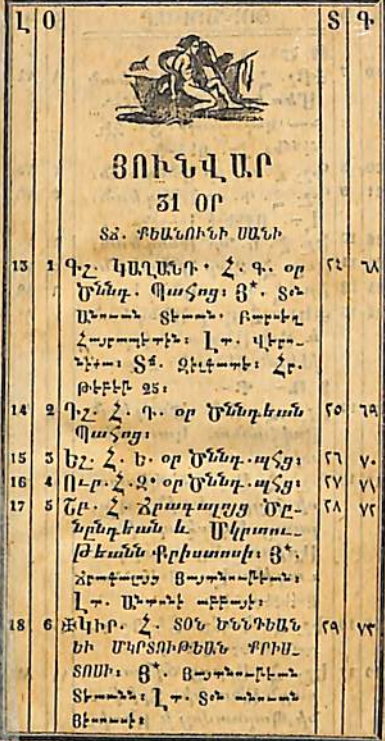 Լ Օ Տ Գ
ՅՈՒՆՎԱՐ
31 ՕՐ
ՏՃ. ՔԵԱՆՈՒՆԻ ՍԱՆԻ
13 1 Գշ. ԿԱՂԱՆԴ. Հ. Գ. օր ۲٤ ٦٨
Ծննդ. Պահոց։ Յ*. Տօն
Անուան Տեառն։ Բարսեղ
Հայրապետին։ Լտ.
Տճ. Հր.
25։
14 2 Դշ. Հ. Դ. օր Ծննդեան ۲٥ ٦٩
Պահոց։
15 3 Եշ. Հ. Ե. օր Ծննդ. պՀց։ ۲٦ ٧٠
16 4 Ուր. Հ. Զ. օր Ծննդ. պՀց։ ۲٧ ٧١
17 5 Շբ. Հ. Ճրագալոյց Ծը- ۲٨ ٧٢
նընդեան և Մկրտու-
թեանն Քրիստոսի։ Յ*.
Ճրագալոյց Յայտնութեան։
Լտ. Անտոնի աբբայի։
18 6 ✠ԿԻՐ. Հ. ՏՕՆ ԾՆՆԴԵԱՆ ۲٩ ٧٣
ԵՒ ՄԿՐՏՈՒԹԵԱՆ ՔՐԻՍ-
ՏՈՍԻ։ Յ*. Յայտնութեան
Տեառն։ Լտ. Տօն անուան
Յիսուսի։